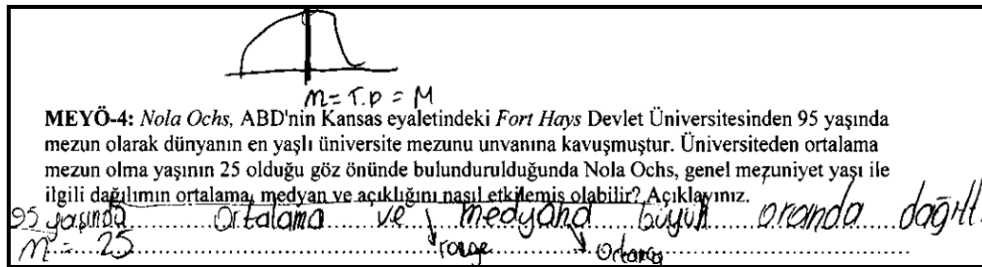 m = T.P = M
MEYÖ-4: Nola Ochs, ABD'nin Kansas eyaletindeki Fort Hays Devlet Üniversitesinden 95 yaşında
mezun olarak dünyanın en yaşlı üniversite mezunu unvanına kavuşmuştur. Üniversiteden ortalama
mezun olma yaşının 25 olduğu göz önünde bulundurulduğunda Nola Ochs, genel mezuniyet yaşı ile
ilgili dağılımın ortalama, medyan ve açıklığını nasıl etkilemiş olabilir? Açıklayınız.
95 yaşında ortalama ve medyanı büyük oranda dağıttı.
m = 25 range ortanca